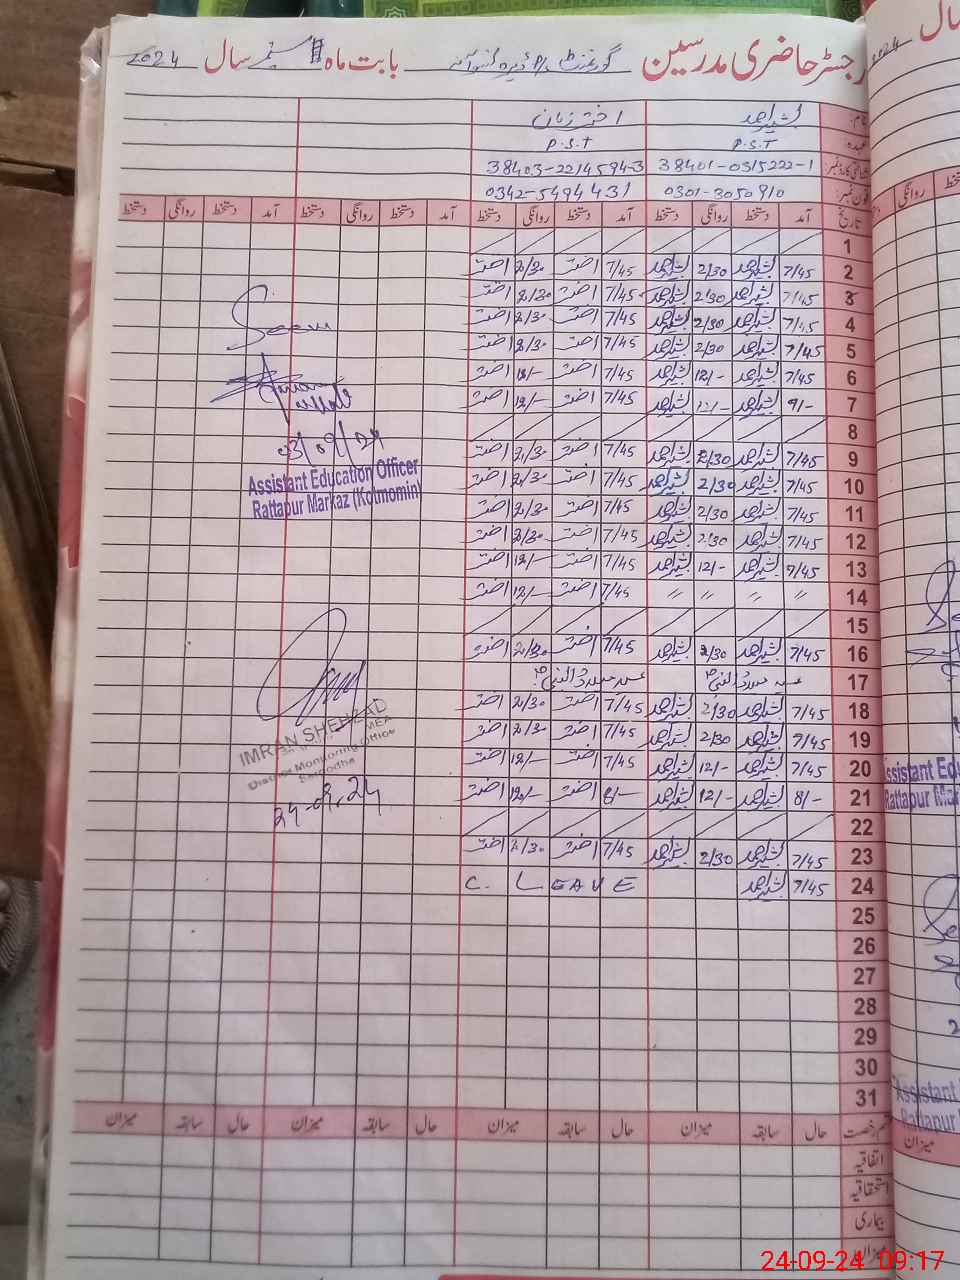 رجسٹر حاضری مدرسین گورنمنٹ P/S ڈیرہ بابت ماہ ستمبر سال 2024
نام: بشیر احمد اختر زمان
عہدہ: P.S.T P.S.T
شناختی کارڈ نمبر: 38401-0315222-1 38403-2214594-3
فون نمبر: 0301-3050910 0342-5494431
تاریخ آمد دستخط روانگی دستخط آمد دستخط روانگی دستخط آمد دستخط روانگی دستخط آمد دستخط روانگی دستخط
1
2 7/45 بشیر احمد 2/30 بشیر احمد 7/45 اختر 2/30 اختر
3 7/45 بشیر احمد 2/30 بشیر احمد 7/45 اختر 2/30 اختر
4 7/45 بشیر احمد 2/30 بشیر احمد 7/45 اختر 2/30 اختر
5 7/45 بشیر احمد 2/30 بشیر احمد 7/45 اختر 2/30 اختر
6 7/45 بشیر احمد 12/- بشیر احمد 7/45 اختر 12/- اختر
7 9/- بشیر احمد 12/- بشیر احمد 7/45 اختر 12/- اختر
8
9 7/45 بشیر احمد 2/30 بشیر احمد 7/45 اختر 2/30 اختر
10 7/45 بشیر احمد 2/30 بشیر احمد 7/45 اختر 2/30 اختر
11 7/45 بشیر احمد 2/30 بشیر احمد 7/45 اختر 2/30 اختر
12 7/45 بشیر احمد 2/30 بشیر احمد 7/45 اختر 2/30 اختر
13 7/45 بشیر احمد 12/- بشیر احمد 7/45 اختر 12/- اختر
14 〃 〃 〃 〃 7/45 اختر 12/- اختر
15
16 7/45 بشیر احمد 2/30 بشیر احمد 7/45 اختر 2/30 اختر
17 عید میلاد النبیؐ عید میلاد النبیؐ
18 7/45 بشیر احمد 2/30 بشیر احمد 7/45 اختر 2/30 اختر
19 7/45 بشیر احمد 2/30 بشیر احمد 7/45 اختر 2/30 اختر
20 7/45 بشیر احمد 12/- بشیر احمد 7/45 اختر 12/- اختر
21 8/- بشیر احمد 12/- بشیر احمد 8/- اختر 12/- اختر
22
23 7/45 بشیر احمد 2/30 بشیر احمد 7/45 اختر 2/30 اختر
24 7/45 بشیر احمد C. LEAVE
25
26
27
28
29
30
31
Seen
03/09/24
Assistant Education Officer
Rattapur Markaz (Kotmomin)
IMRAN SHEHZAD
MEA
District Monitoring Office
Sargodha
24-09-24
قسم رخصت حال سابقہ میزان حال سابقہ میزان حال سابقہ میزان حال سابقہ میزان
اتفاقیہ
استحقاقیہ
بیماری
میزان
سال
2024
روانگی
Assistant Edu
Rattapur Mar
Assistant
Rattapur
میزان
24-09-24 09:17